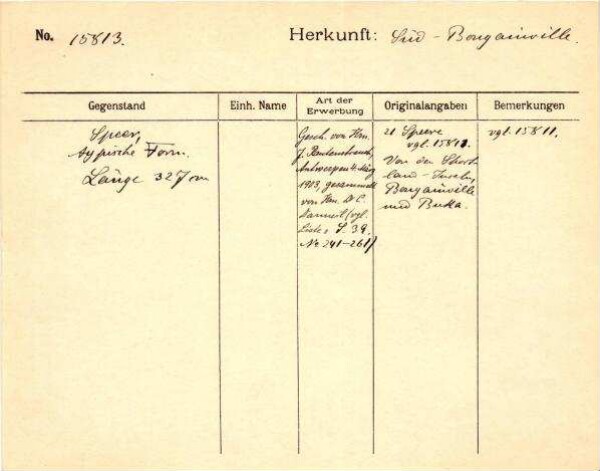 No. 15813.
Herkunft: Süd - Bougainville.
Gegenstand
Einh. Name
Art der Erwerbung
Originalangaben
Bemerkungen
Speer,
typische Form.
Länge 327 cm
Gesch. von Hrn.
J. Rautenstrauch,
Antwerpen 4. März
1903, gesammelt
von Hrn. Dr C.
(vgl.
Liste S. 39.
No 241-261)
21 Speere
vgl. 15811.
Von den Short-
land-Inseln,
Bougainville
und Buka.
vgl. 15811.